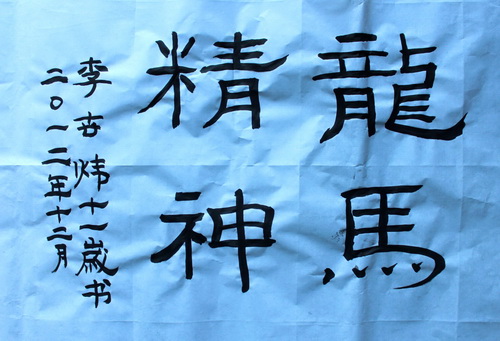 龍馬
精神
李炜十一歲书
二〇一二年十二月